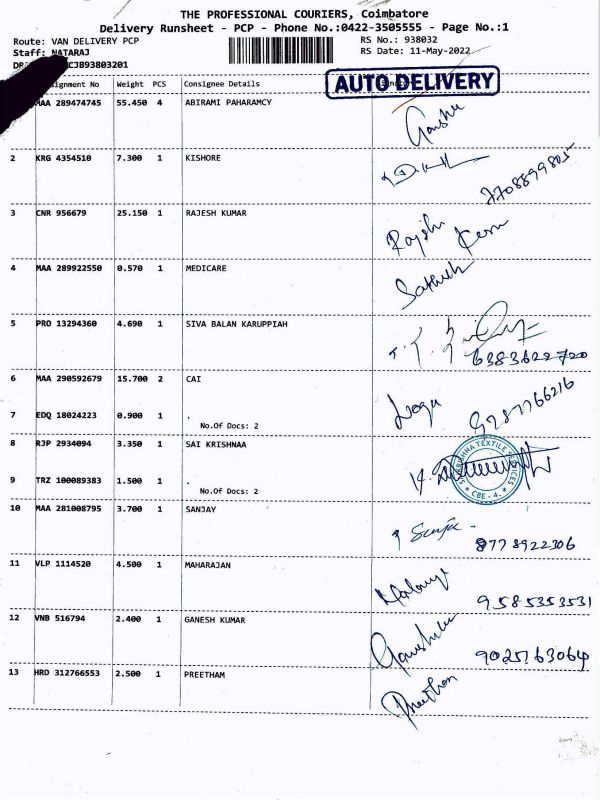 THE PROFESSIONAL COURIERS, Coimbatore
Delivery Runsheet - PCP - Phone No.:0422-3505555 - Page No.:1
Route: VAN DELIVERY PCP RS No.: 938032
Staff: NATARAJ RS Date: 11-May-2022
CJB93803201
Weight PCS Consignee Details
AUTO DELIVERY
MAA 289474745 55.450 4 ABIRAMI PAHARAMCY
2 KRG 4354510 7.300 1 KISHORE
3 CNR 956679 25.150 1 RAJESH KUMAR
4 MAA 289922550 0.570 1 MEDICARE
5 PRO 13294360 4.690 1 SIVA BALAN KARUPPIAH
6383622720
6 MAA 290592679 15.700 2 CAI
7 EDQ 18024223 0.900 1 .
No.Of Docs: 2
8 RJP 2934094 3.350 1 SAI KRISHNAA
9 TRZ 100089383 1.500 1 .
No.Of Docs: 2
CBE - 4.
10 MAA 281008795 3.700 1 SANJAY
8778922306
11 VLP 1114520 4.500 1 MAHARAJAN
9585353531
12 VNB 516794 2.400 1 GANESH KUMAR
9025163064
13 HRD 312766553 2.500 1 PREETHAM
Preetham